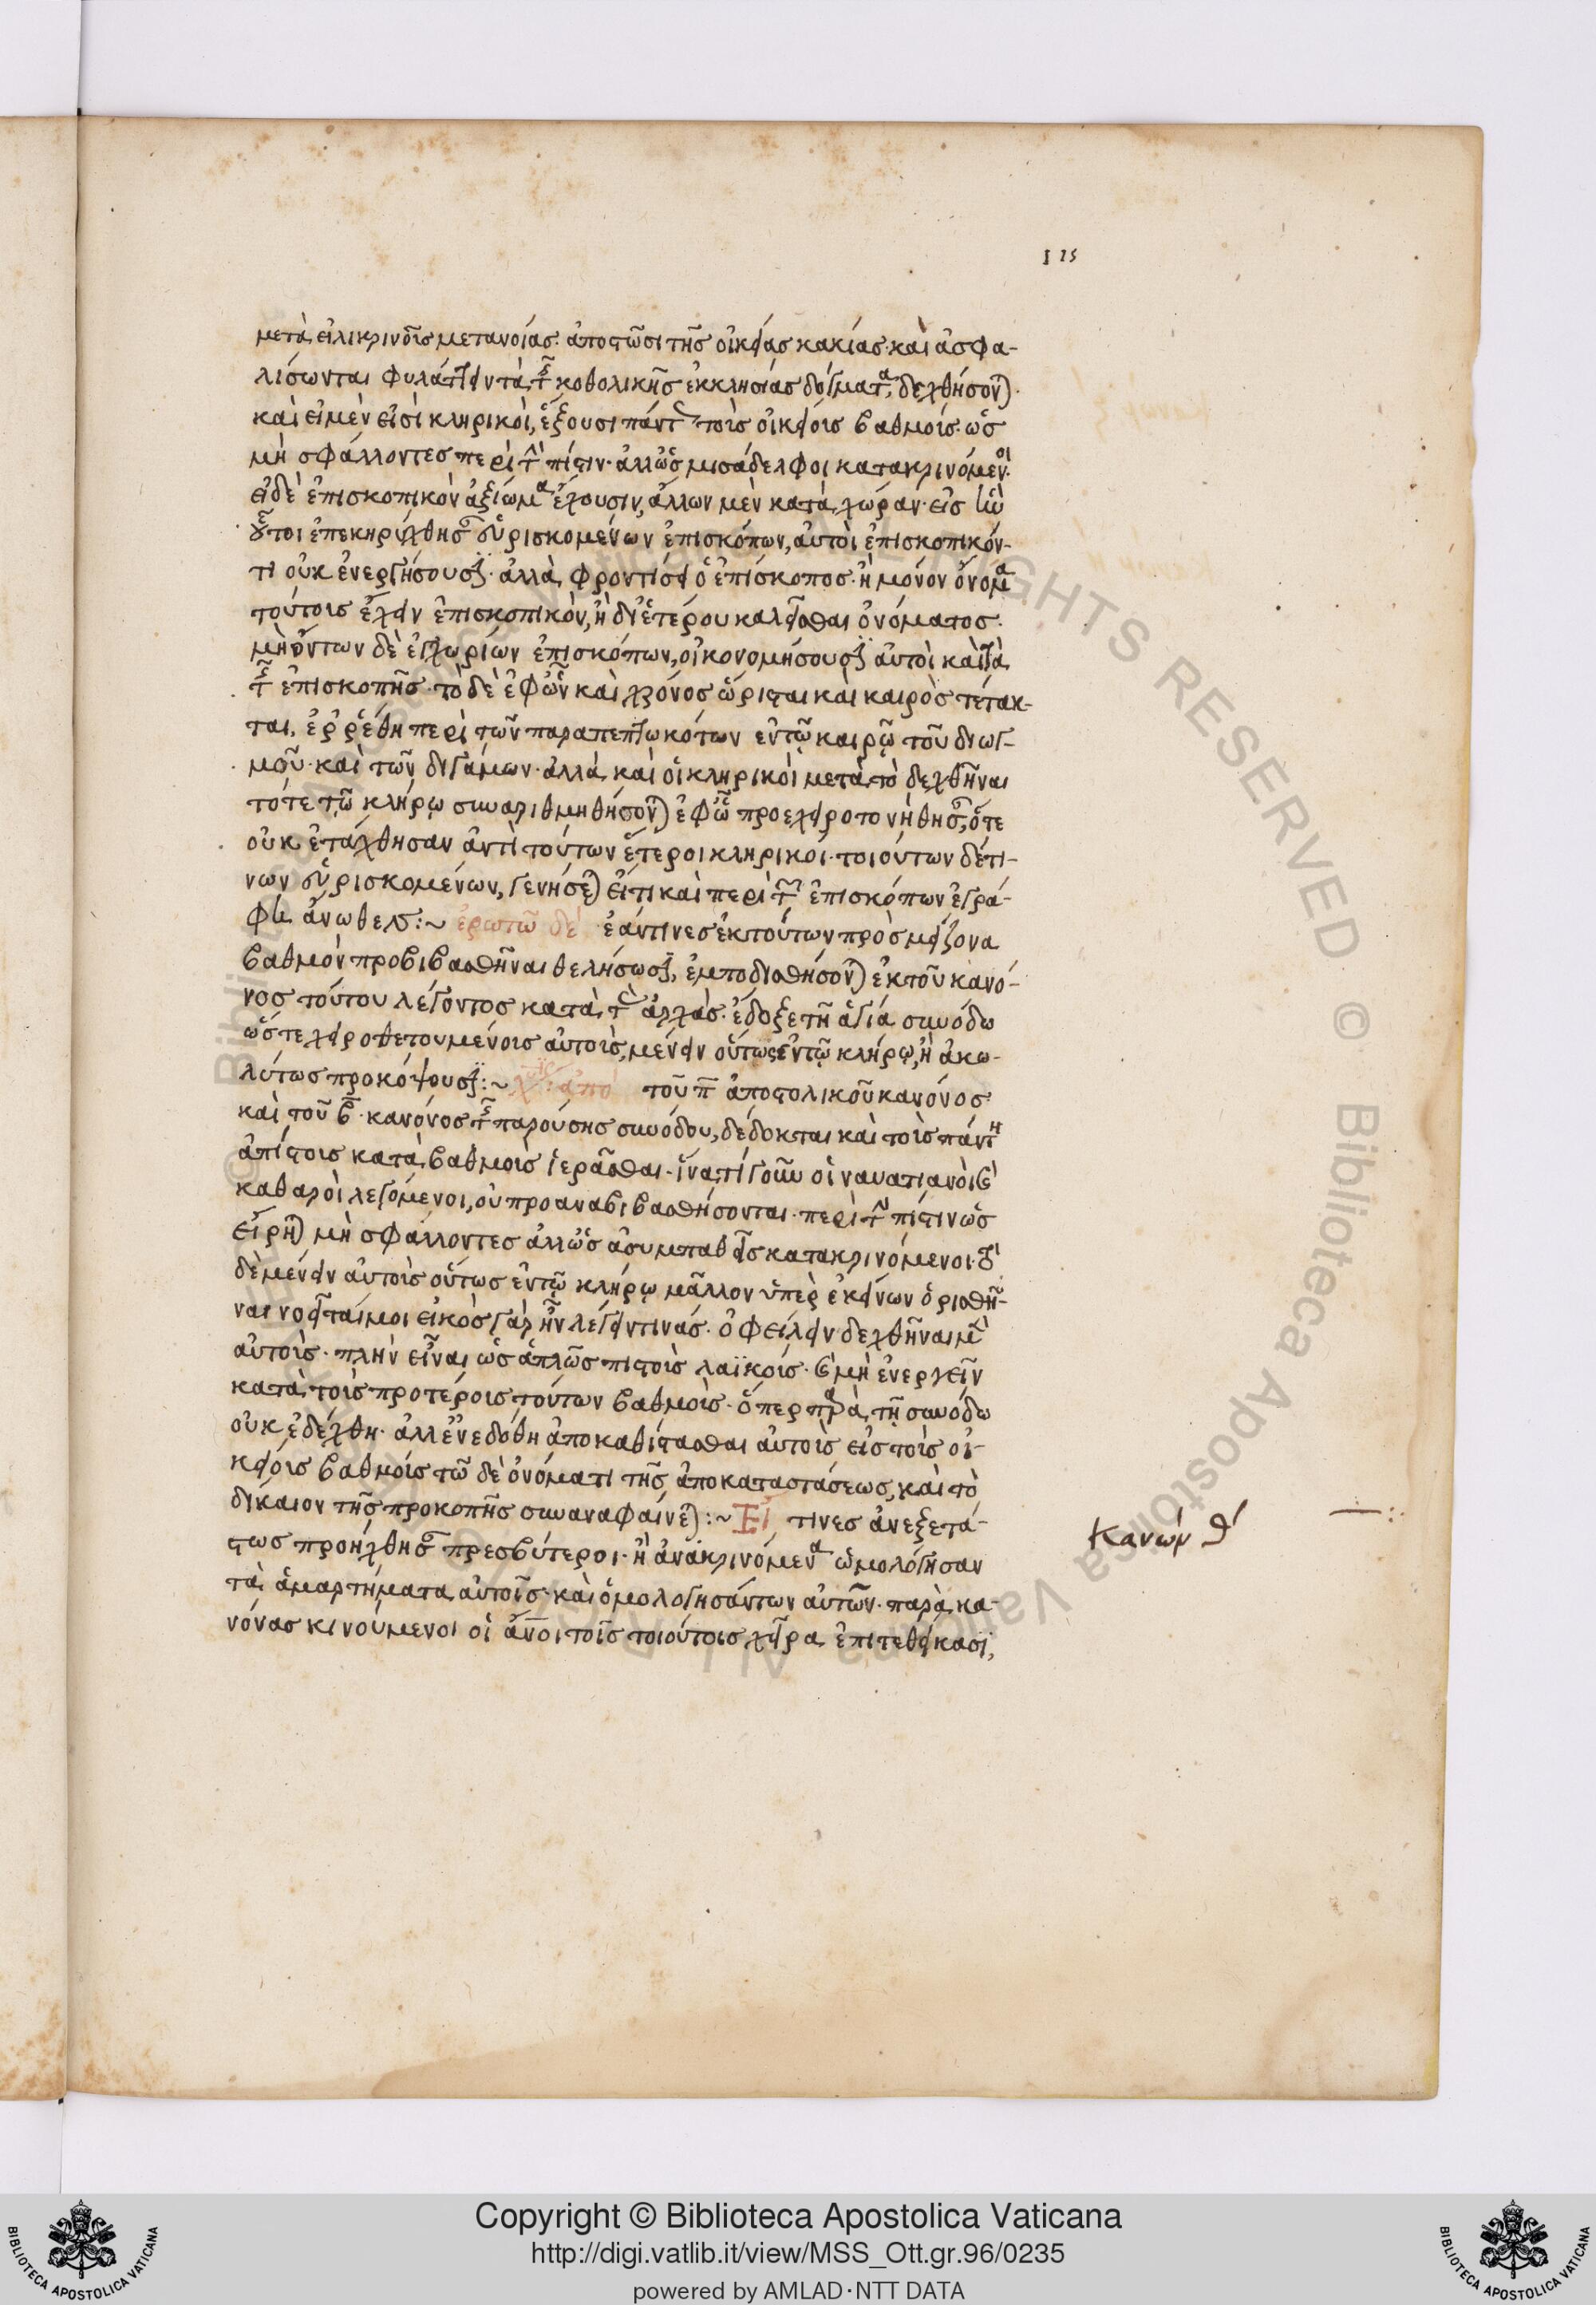 115
μετὰ εἰλικρινοῦς μετανοίας ἀποστῶσι τῆς οἰκείας κακίας· καὶ ἀσφα-
λίσωνται φυλάττειν τὰ τῆς καθολικῆς ἐκκλησίας δόγματα, δεχθήσονται·
καὶ εἰ μὲν εἰσὶ κληρικοὶ, ἕξουσι πάντως τοῖς οἰκείοις βαθμοῖς· ὡς
μὴ σφάλλοντες περὶ τὴν πίστιν· ἀλλ' ὡς μισάδελφοι κατακρινόμενοι·
εἰ δὲ ἐπισκοπικὸν ἀξίωμα ἔχουσιν, ἄλλων μὲν κατὰ χώραν· εἰς ἣν
οὗτοι ἐπεκηρύχθησαν εὑρισκομένων ἐπισκόπων, αὐτοὶ ἐπισκοπικόν-
τι οὐκ ἐνεργήσουσι· ἀλλὰ φροντίσει ὁ ἐπίσκοπος· ἢ μόνον ὄνομα
τούτοις ἔχειν ἐπισκοπικὸν, ἢ δι' ἑτέρου καλεῖσθαι ὀνόματος·
μὴ ὄντων δὲ ἐγχωρίων ἐπισκόπων, οἰκονομήσουσι αὐτοὶ καὶ τὰ
τῆς ἐπισκοπῆς· τὸ δὲ ἐφ' ὧν καὶ χρόνος ὥρισται καὶ καιρὸς τέτακ-
ται, ἐρρέθη περὶ τῶν παραπεπτωκότων ἐν τῷ καιρῷ τοῦ διωγ-
μοῦ· καὶ τῶν διγάμων· ἀλλὰ καὶ οἱ κληρικοὶ μετὰ τὸ δεχθῆναι
τότε τῷ κλήρῳ συναριθμηθήσονται ἐφ' ᾧ προεχειροτονήθησαν, ὅτε
οὐκ ἐτάχθησαν ἀντὶ τούτων ἕτεροι κληρικοί· τοιούτων δέ τι-
νων εὑρισκομένων, γενήσεται εἴ τι καὶ περὶ τῶν ἐπισκόπων ἐγρά-
φη ἄνωθεν :~ ἐρωτῶ δὲ ἐάν τινες ἐκ τούτων πρὸς μείζονα
βαθμὸν προβιβασθῆναι θελήσωσι, ἐμποδισθήσονται ἐκ τοῦ κανό-
νος τούτου λέγοντος κατὰ τὰς ἀρχὰς· ἔδοξε τῇ ἁγίᾳ συνόδω
ὥστε χειροθετουμένοις αὐτοῖς, μένειν οὕτως ἐν τῷ κλήρῳ, ἢ ἀκω-
λύτως προκόψουσι :~ ἀπὸ τοῦ π ἀποστολικοῦ κανόνος
καὶ τοῦ β κανόνος τῆς παρούσης συνόδου, δέδοκται καὶ τοῖς πάντη
ἀπίστοις κατὰ βαθμοῖς ἱερᾶσθαι· ἵνα τί γοῦν οἱ ναυατιανοὶ καὶ
καθαροὶ λεγόμενοι, οὐ προαναβιβασθήσονται· περὶ τὴν πίστιν ὡς
εἴρηται μὴ σφάλλοντες ἀλλ' ὡς ἀσυμπαθεῖς κατακρινόμενοι· τὸ
δὲ μένειν αὐτοῖς οὕτως ἐν τῷ κλήρῳ μᾶλλον ὑπὲρ ἐκείνων ὁρισθῆ-
ναι νοεῖταί μοι εἰκὸς γὰρ ἦν λέγειν τινάς· ὀφείλειν δεχθῆναι μὲν
αὐτοῖς· πλὴν εἶναι ὡς ἁπλῶς πιστοῖς λαϊκοῖς· καὶ μὴ ἐνεργεῖν
κατὰ τοῖς προτέροις τούτων βαθμοῖς· ὅπερ παρὰ τῇ συνόδω
οὐκ ἐδέχθη· ἀλλ' ἐνεδόθη ἀποκαθίστασθαι αὐτοῖς εἰς τοῖς οἰ-
κείοις βαθμοῖς τῶ δὲ ὀνόματι τῆς ἀποκαταστάσεως, καὶ τὸ
δίκαιον τῆς προκοπῆς συναναφαίνεται :~ Εἴ τινες ἀνεξετά-
στως προήχθησαν πρεσβύτεροι· ἢ ἀνακρινόμενα ὡμολόγησαν
τὰ ἁμαρτήματα αὐτοῖς· καὶ ὁμολογησάντων αὐτῶν· παρὰ κα-
νόνας κινούμενοι οἱ ἄνοι τοῖς τοιούτοις χεῖρα ἐπιτεθείκασι,
Κανών θ
Copyright © Biblioteca Apostolica Vaticana
http://digi.vatlib.it/view/MSS_Ott.gr.96/0235
powered by AMLAD·NTT DATA